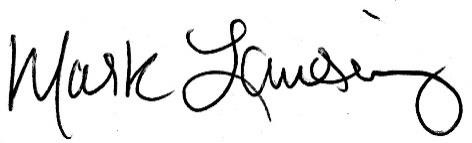 Mark Lansing